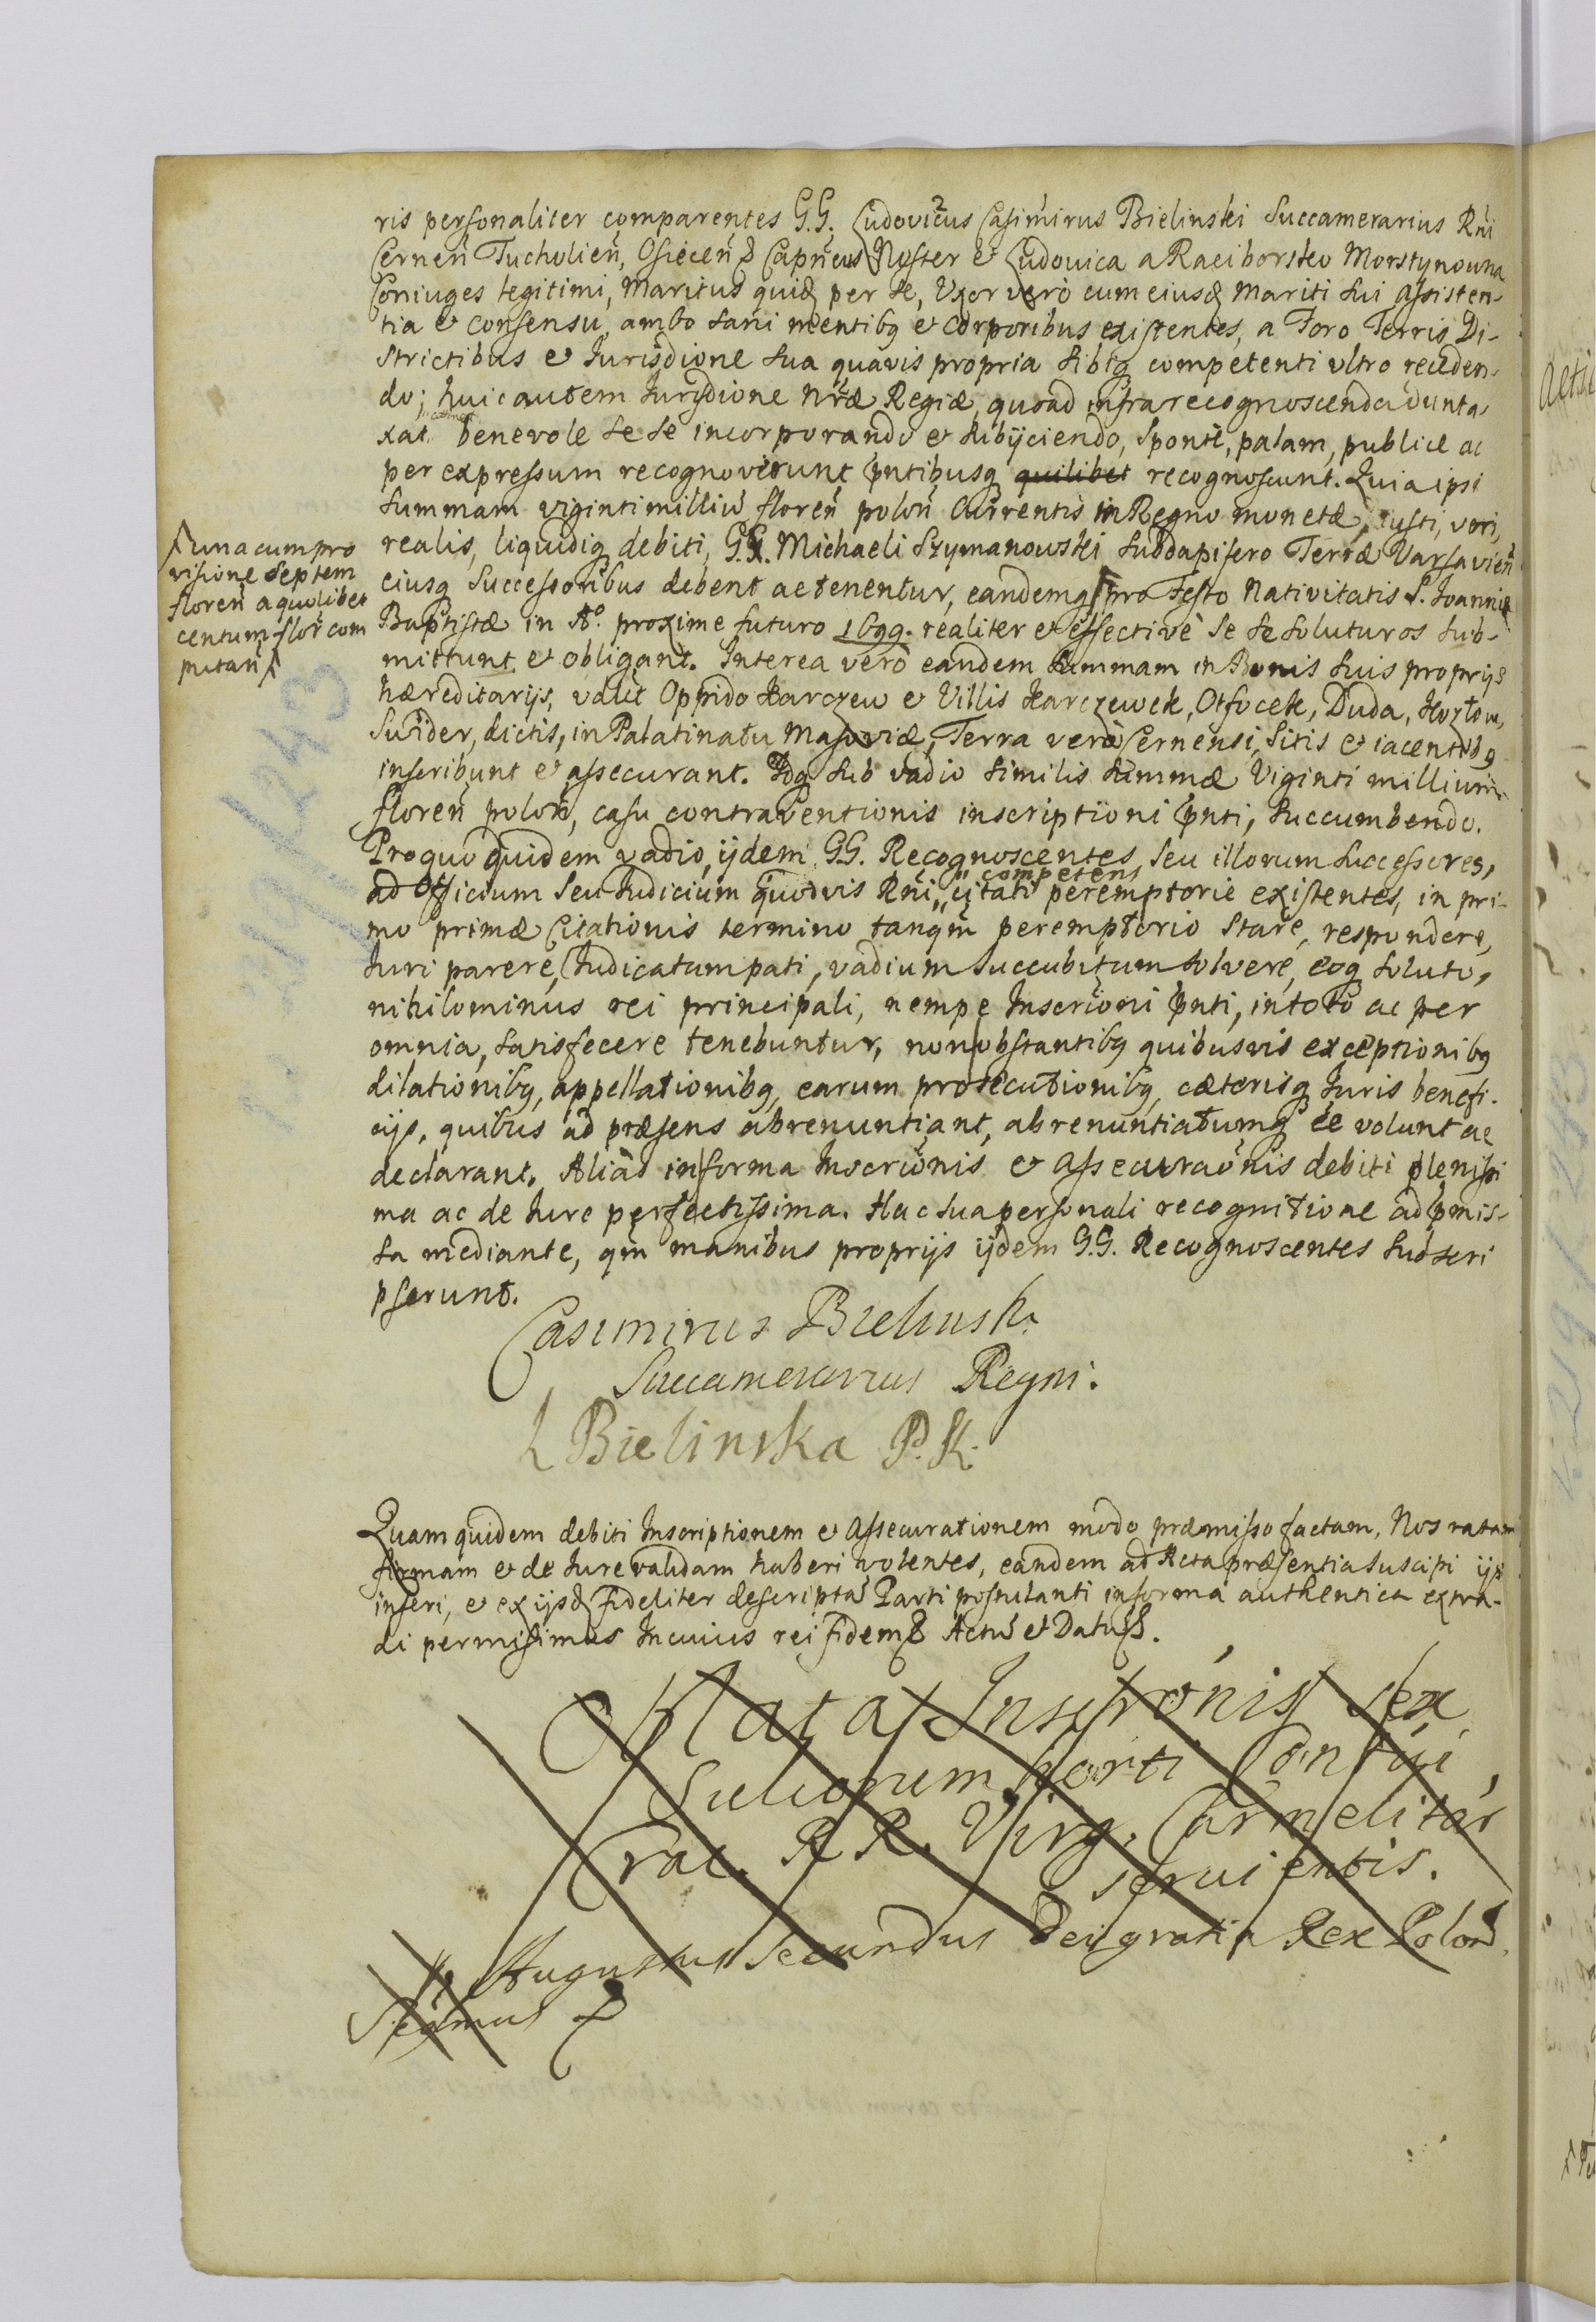 ris personaliter comparentes G.G. Ludovicus Casimirus Bielinski Succamerarius Rñi
Cernen̄ Tucholien̄, Osiecen̄ & Capneus Noster et Ludovica a Raciborsko Morstynowna
Coniuges legitimi, Maritus quid per se, Uxor verò cum eiusd Mariti sui assisten-
tia et consensu, ambo sani mentibq et corporibus existentes, a Foro Terris Di-
strictibus et Jurisdione sua quavis propria sibiq competenti ultro receden-
do; huic autem Jurisdione Nræ Regiæ, quoad infra recognoscenda dunta-
xat benevole se se incorporando et subijciendo, sponte, palam, publice ac
per expressum recognoverunt p̄ntibusq quilibet recognoscunt. Quia ipsi
summam viginti milliu floren̄ polon̄ Currentis in Regno monetæ, iusti, veri,
realis, liquidiq debiti, G. Michaeli Szymanowski subdapifero Terræ Varsavien̄
eiusq Successoribus debent ac tenentur, eandemq pro Festo Nativitatis S. Joannis
Baptistæ in A⁰. proxime futuro 1699. realiter et effectivè se se soluturos sub-
mittunt et obligant. Interea verò eandem summam in Bonis suis proprijs
hæreditarijs, vdlit Oppido Karczew et Villis Karczewek, Otfocek, Duda,
Swider, dictis, in Palatinatu Masoviæ, Terra verò Cernensi, sitis et iacentibq
inscribunt et assecurant. Idq sub vadio similis summæ Viginti millium
floren̄ polon̄, casu contraventionis inscriptioni p̄nti, succumbendo.
Pro quo quidem vadio, ijdem G.G. Recognoscentes, seu illorum successores,
ad Officium seu Judicium quodvis Rñi, competens citati peremptorie existentes, in pri-
mo primæ Citationis termino tanqm̄ peremptorio stare, respondere,
Juri parere, Judicatum pati, vadium succubitum solvere, eoq soluto,
nihilominus rei principali, nempe Inscrioni p̄nti, in toto ac per
omnia, satisfecere tenebuntur, non obstantibq quibusvis exceptionibq
dilationibq, appellationibq, earum prosecutionibq, cæterisq Juris benefi-
cijs, quibus ad præsens abrenuntiant, abrenuntiatumq ee volunt ac
declarant. Aliàs in forma Inscrionis et assecuraonis debiti plenissi
ma ac de Jure perfectissima. Hac sua personali recognitione ad p̄mis-
sa mediante, qm̄ manibus proprijs ijdem G.G. Recognoscentes subscri
pserunt.
una cum pro
visione septem
floren̄ a quolibet
centum flor̄ com
putan̄
Casimirus Bielinski
Succamerarius Regni.
L Bielinska P. K.
Quam quidem debiti Inscriptionem et Assecurationem modo præmisso factam, Nos ratam
firmam et de Jure validam haberi volentes, eandem ad Acta præsentia suscipi ijs
inseri, et ex ijsd fideliter descriptā Parti postulanti in forma authentica extra-
di permisimus In cuius rei fidem & Actū et Datū ss.
Oblata Inscrionis sex
horti Contui
Crac. R R. Virg. Carmelitar
servientis.
Augustus Secundus Dei gratia Rex Polon̄.